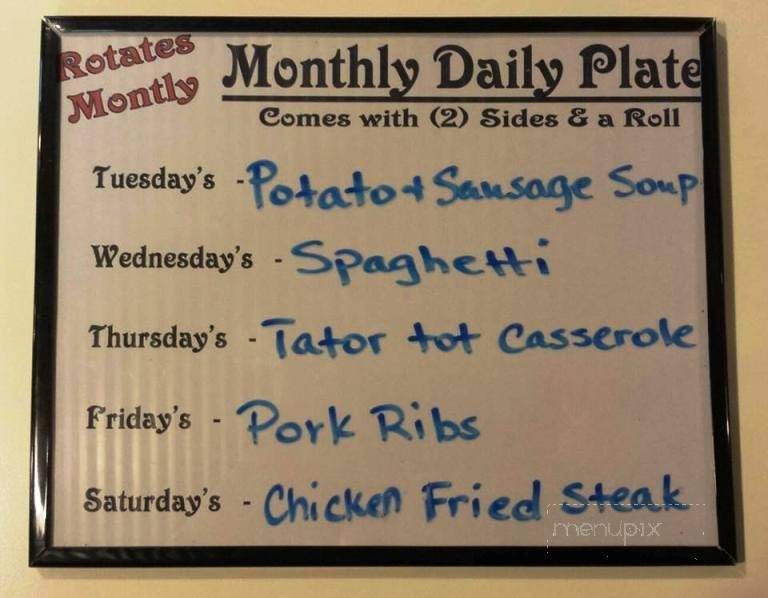 Rotates
Montly
Monthly Daily Plate
Comes with (2) Sides & a Roll
Tuesday's - Potato + Sausage Soup
Wednesday's - Spaghetti
Thursday's - Tator tot Casserole
Friday's - Pork Ribs
Saturday's - Chicken Fried Steak
menupix